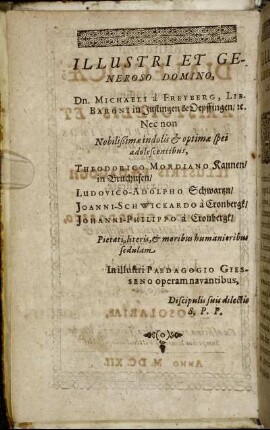 ILLUSTRI ET GE-
NEROSO DOMINO,
DN. MICHAELI à FREYBERG, LIB.
BARONI in Justingen & Oepffingen, &c.
Nec non
Nobilißimæ indolis & optimæ spei
adolescentibus,
THEODORICO MORDIANO Kannen/
in Bruchusen/
LUDOVICO-ADOLPHO Schwartzn/
JOANNI-SCHWICKARDO à Cronbergk/
JOHANNI-PHILIPPO à Cronbergk/
Pietati, literis, & moribus humanioribus
sedulam
In illustri PAEDAGOGIO GIES-
SENO operam navantibus,
Discipulis suis dilectis
S. P. P.